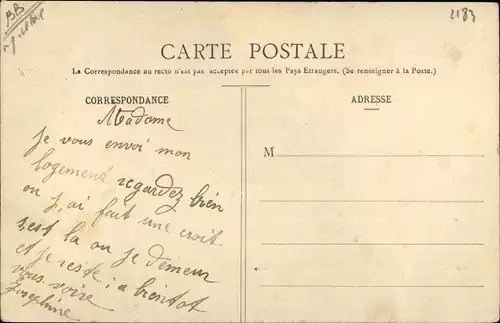 BB
2183
CARTE POSTALE
La Correspondance au recto n'est pas acceptée par tous les Pays Etrangers. (Se renseigner à la Poste.)
CORRESPONDANCE
Madame
Je vous envoi mon
logement regardez bien
ou j'ai fait une croit
s'est la ou je demeur
et je reste : a bientot
vous voire
Josephine
ADRESSE
M